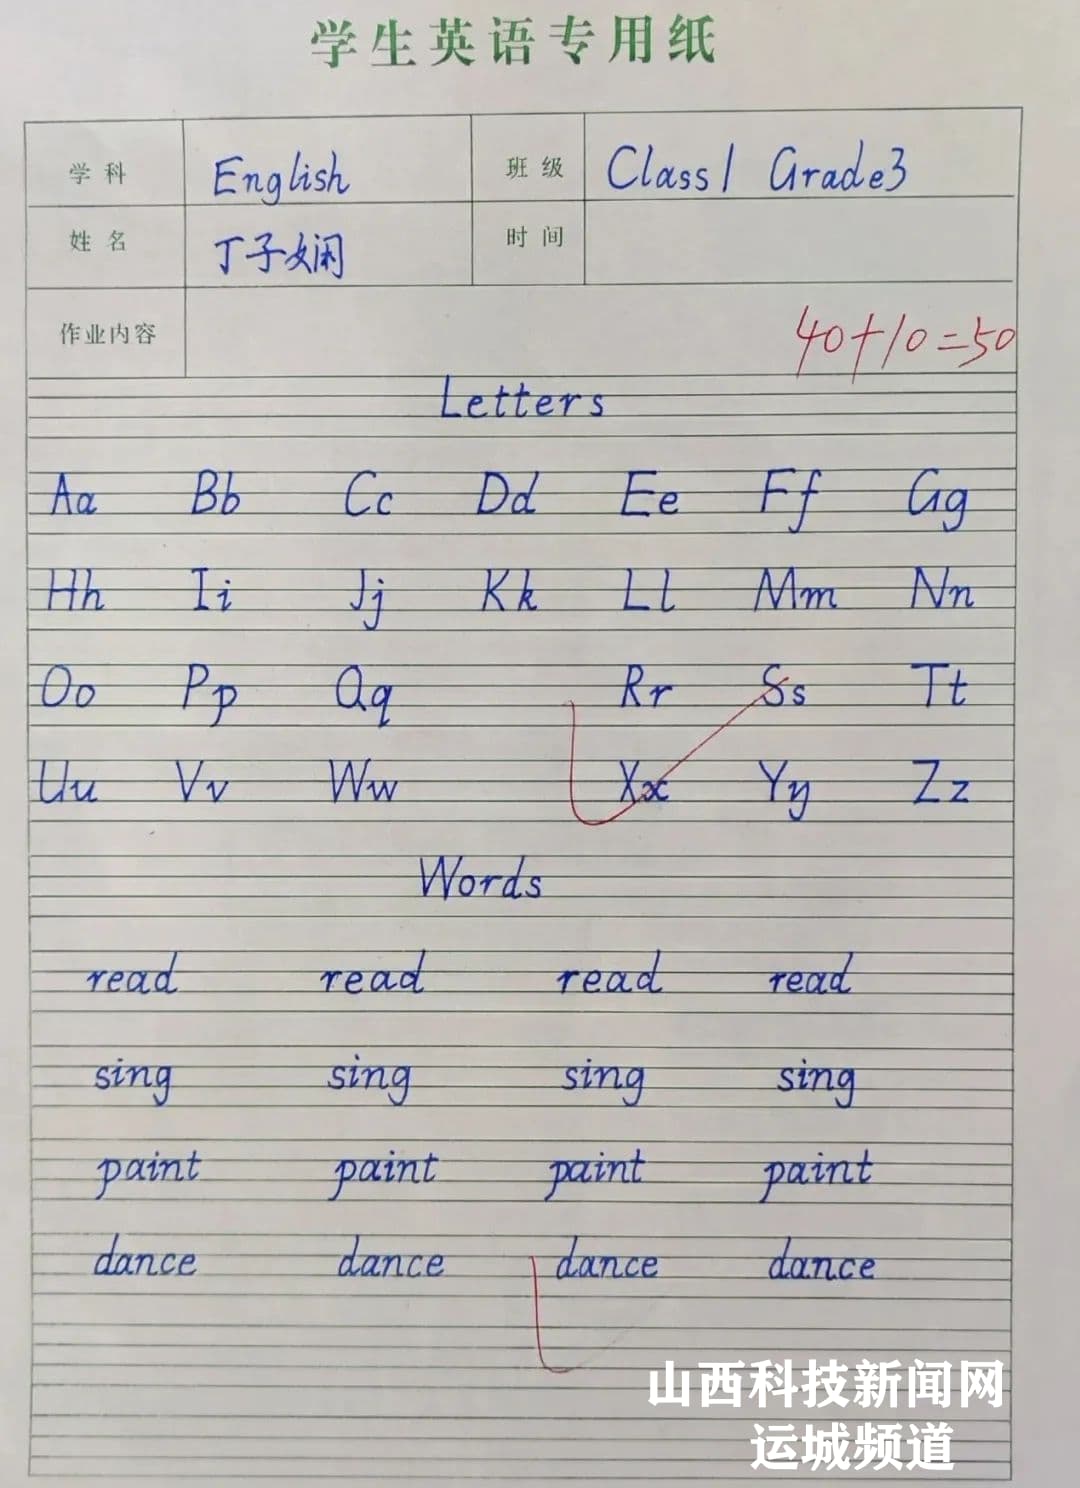 学生英语专用纸
学科 English 班级 Class1 Grade3
姓名 丁子娴 时间
作业内容
40+10=50
Letters
Aa Bb Cc Dd Ee Ff Gg
Hh Ii Jj Kk Ll Mm Nn
Oo Pp Qq Rr Ss Tt
Uu Vv Ww Xx Yy Zz
Words
read read read read
sing sing sing sing
paint paint paint paint
dance dance dance dance
山西科技新闻网
运城频道